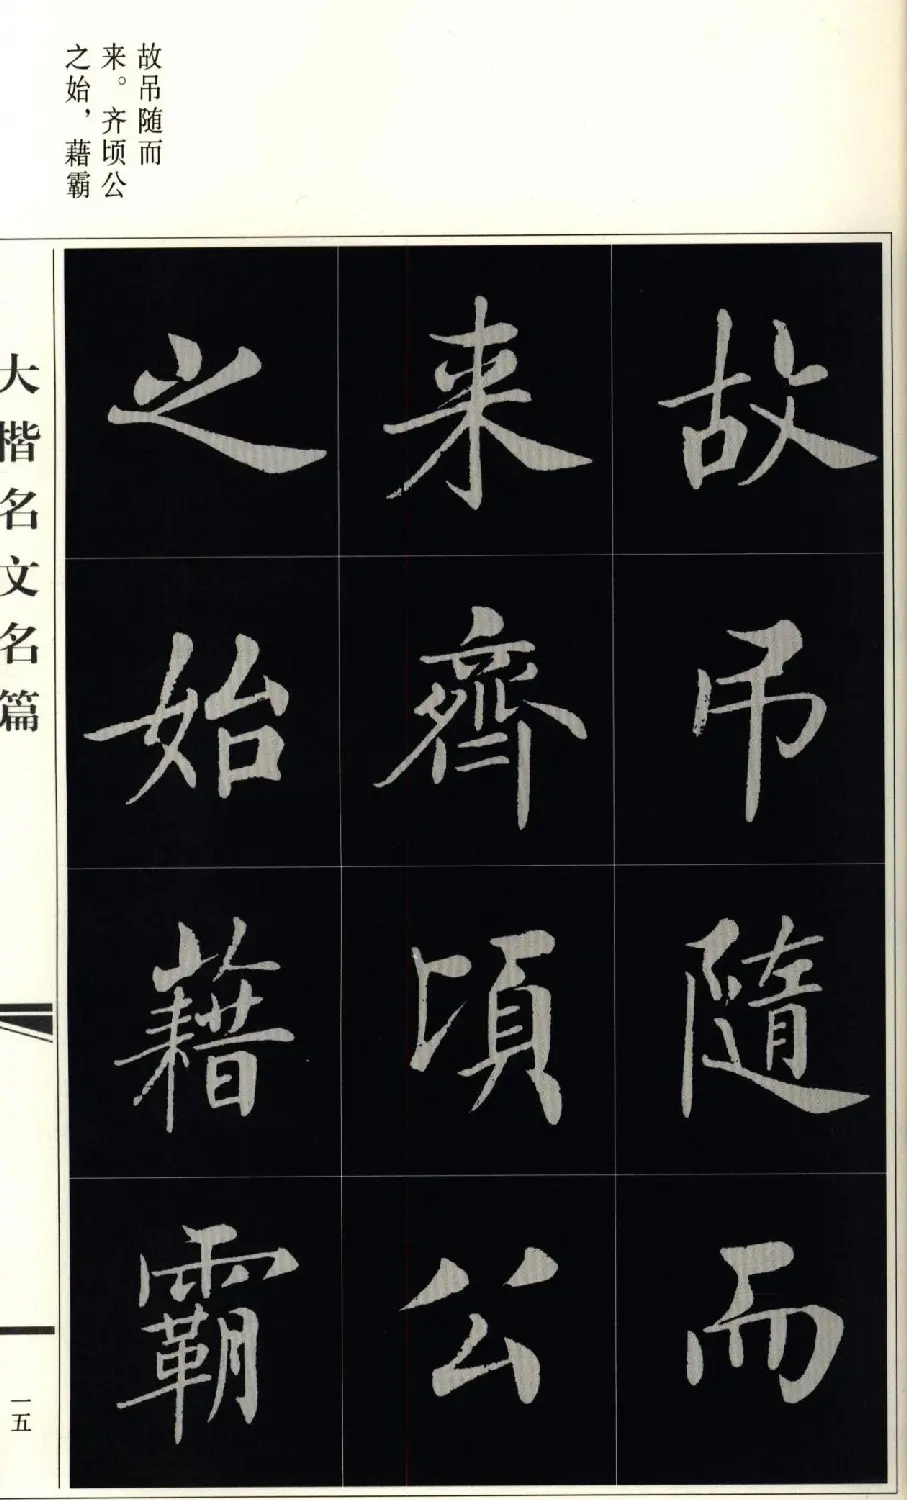 故吊随而
来。齐顷公
之始，藉霸
故吊隨而
来齊頃公
之始藉霸
大楷名文名篇
一五